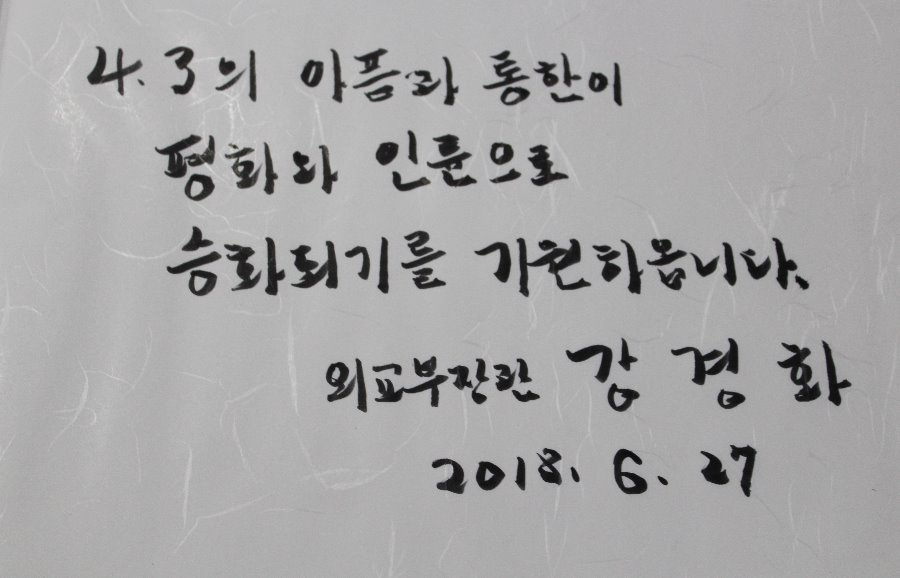 4. 3의 아픔과 통한이
평화와 인륜으로
승화되기를 기원하옵니다.
외교부장관 강경화
2018. 6. 27